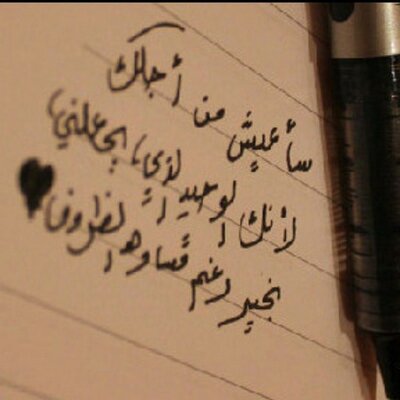 سأعيش من أجلك
لأنك الوحيد الذي يجعلني
بخير رغم قساوه الظروف ♥